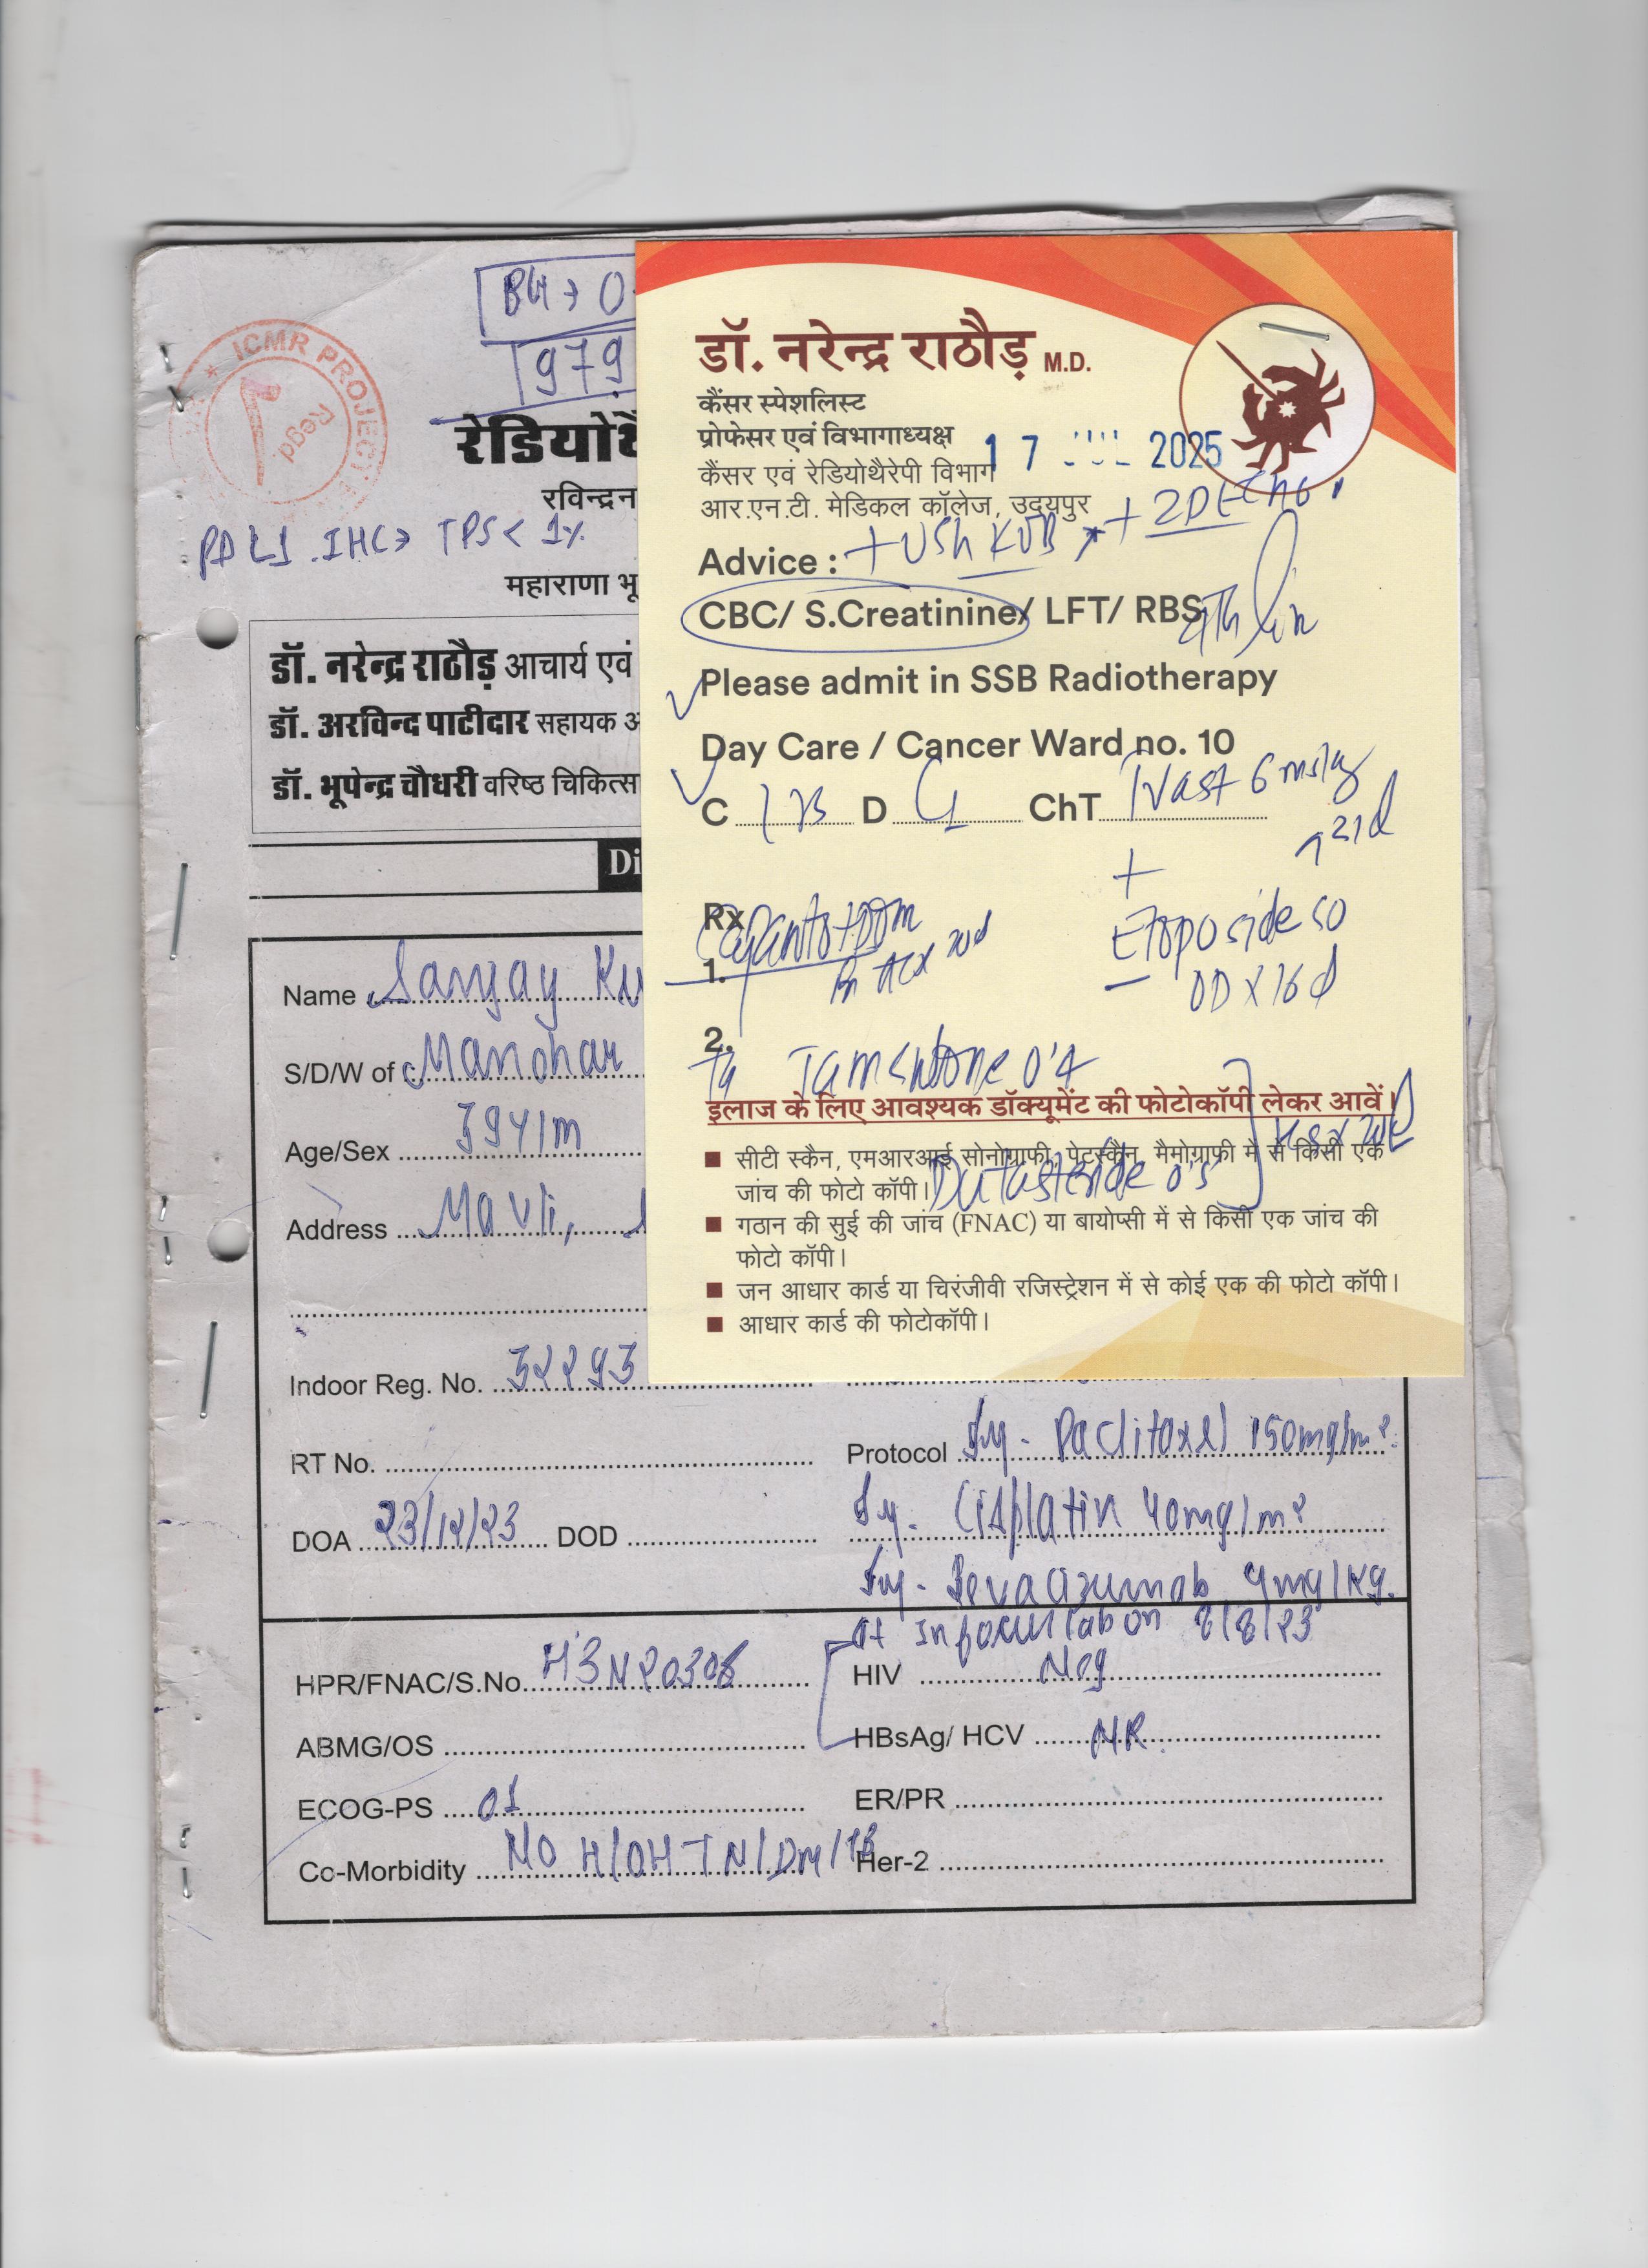 BG → O
979
ICMR PROJECT
Regd.
रेडियोथै
रविन्द्रन
PDL1 IHC → TPS < 1%
महाराणा भू
डॉ. नरेन्द्र राठौड़ आचार्य एवं
डॉ. अरविन्द पाटीदार सहायक अ
डॉ. भूपेन्द्र चौधरी वरिष्ठ चिकित्स
Di
Name Sanjay Ku
S/D/W of Manohar
Age/Sex 39Y/m
Address Mavli,
Indoor Reg. No. 32293
RT No.
DOA 23/12/23 DOD
Protocol Inj- Paclitaxel 150mg/m²
Inj- Cisplatin 40mg/m²
Inj- Bevacizumab 4mg/kg.
at Infocus lab on 8/8/23
HPR/FNAC/S.No. H3N20306
HIV Neg
ABMG/OS
HBsAg/ HCV NR
ECOG-PS 01
ER/PR
Co-Morbidity NO H/O HTN/DM/TB
Her-2
डॉ. नरेन्द्र राठौड़ M.D.
कैंसर स्पेशलिस्ट
प्रोफेसर एवं विभागाध्यक्ष
17 JUL 2025
कैंसर एवं रेडियोथैरेपी विभाग
आर.एन.टी. मेडिकल कॉलेज, उदयपुर
Advice : + USG KUB + 2D ECHO
CBC/ S.Creatinine/ LFT/ RBS
Please admit in SSB Radiotherapy
Day Care / Cancer Ward no. 10
C D ChT 6 mg/kg
21d
+
Etoposide 50
OD X 16 d
Rx
1.
2.
Tamsulosine 0.4
Dutasteride 0.5
इलाज के लिए आवश्यक डॉक्यूमेंट की फोटोकॉपी लेकर आवें।
■ सीटी स्कैन, एमआरआई सोनोग्राफी, पेटस्कैन, मैमोग्राफी में से किसी एक
जांच की फोटो कॉपी।
■ गठान की सुई की जांच (FNAC) या बायोप्सी में से किसी एक जांच की
फोटो कॉपी।
■ जन आधार कार्ड या चिरंजीवी रजिस्ट्रेशन में से कोई एक की फोटो कॉपी।
■ आधार कार्ड की फोटोकॉपी।